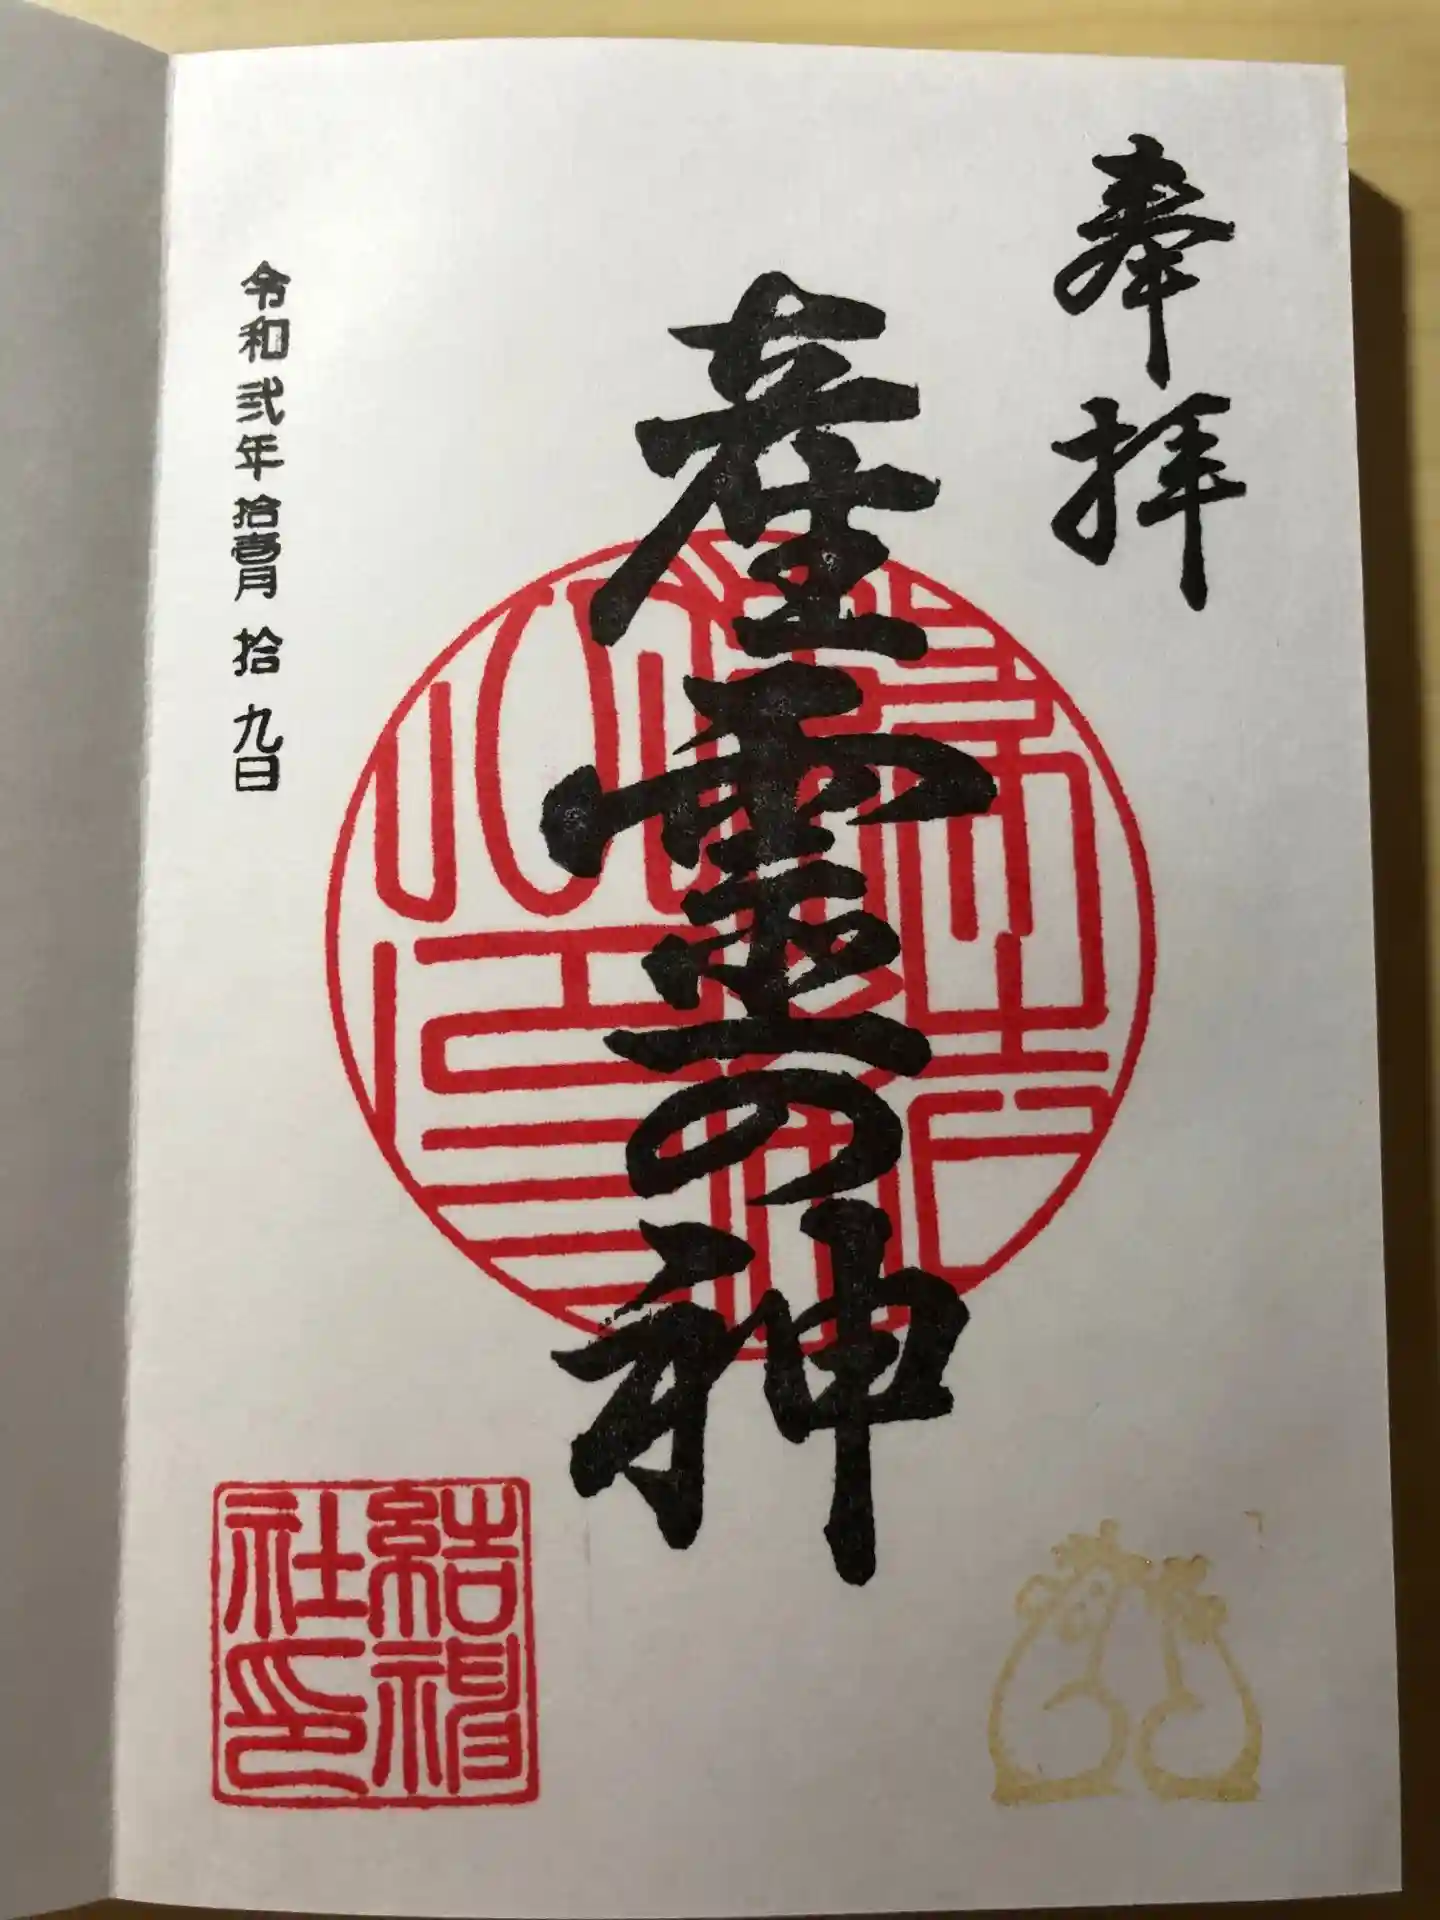 奉拝
産霊の神
令和弐年拾壱月拾九日
結神社印